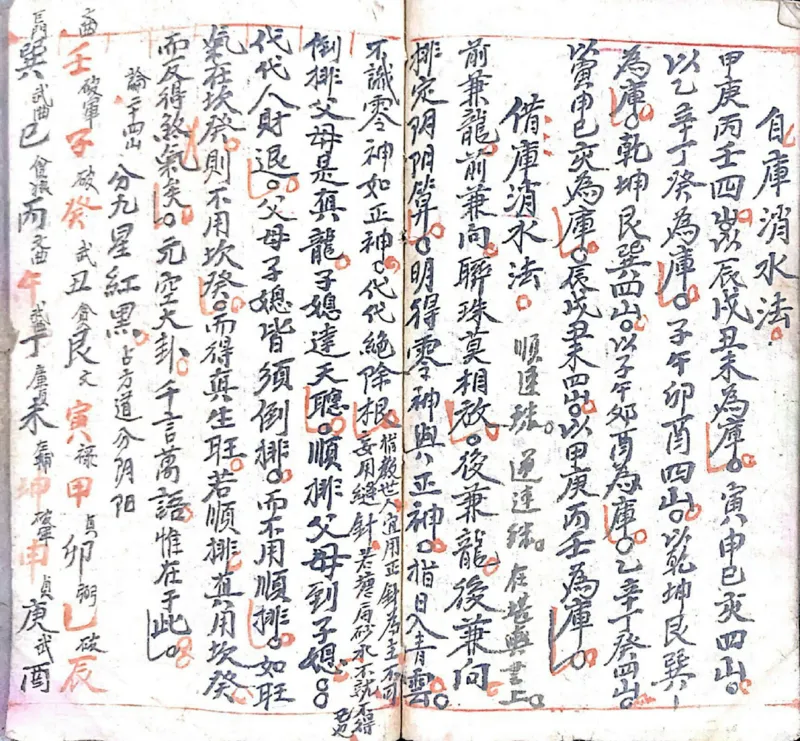 自庫消水法
甲庚丙壬四山。以辰戌丑未為庫。寅申巳亥四山。
以乙辛丁癸為庫。子午卯酉四山。以乾坤艮巽
為庫。乾坤艮巽四山。以子午卯酉為庫。乙辛丁癸四山。
以寅申巳亥為庫。辰戌丑未四山。以甲庚丙壬為庫。
借庫消水法。順連珠。逆連珠。在堪輿書上。
前兼龍前兼向聯珠莫相放。後兼龍後兼向
排定阴阳算。明得零神與正神。指日入青雲。
不識零神如正神。代代絶除根。指教世人宜用正針為主不可
妄用縫針。若龍肩砂水不就不得
倒排父母是真龍子媳達天聽。順排父母到子媳。
代代人財退。父母子媳皆須倒排。而不用順排。如旺
氣在坎癸則不用坎癸。而得真生旺若順排真用坎癸
而反得煞氣矣。元空大卦千言萬語惟在于此。
論二十四山 分九星紅黑。占方道分阴阳
壬破軍子破癸武丑貪艮文寅祿甲貞卯弼乙破辰
巽武曲巳貪狼丙午丁未坤申貞庚武酉